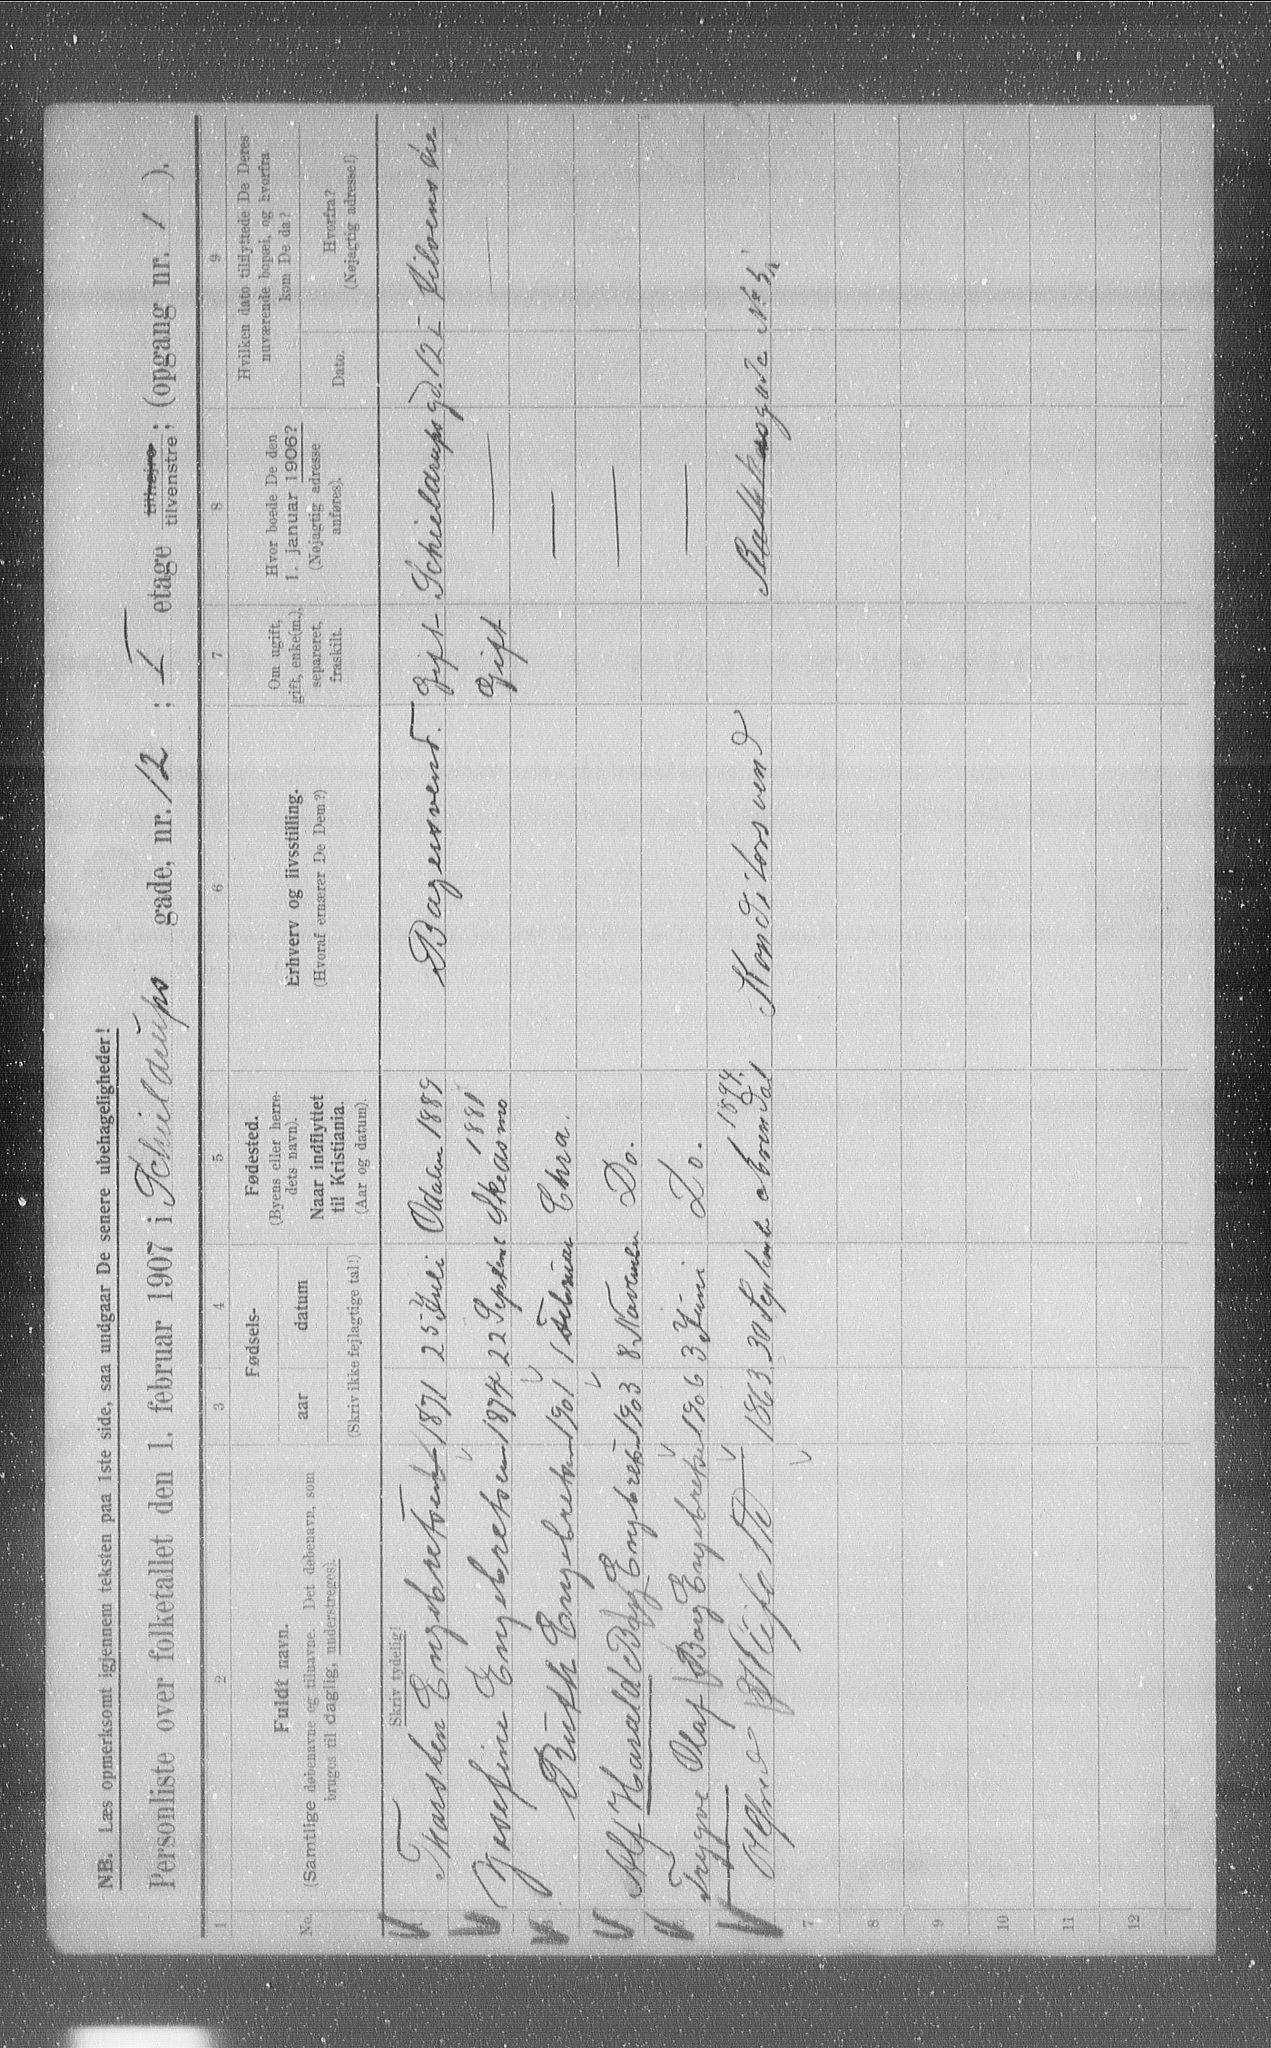 NB. Læs opmerksomt igjennem teksten paa 1ste side, saa undgaar De senere ubehageligheder!
Personliste over folketallet den 1. februar 1907 i Schieldrups gade, nr. 12 ; I etage tilhøjre tilvenstre; (opgang nr. 1 ).
1 2 3 4 5 6 7 8 9
No.
Fuldt navn.
(Samtlige døbenavne og tilnavne. Det døbenavn, som
bruges til daglig, understreges).
Fødsels-
aar datum
(Skriv ikke fejlagtige tal!)
Fødested.
(Byens eller herre-
dets navn).
Naar indflyttet
til Kristiania.
(Aar og datum).
Erhverv og livsstilling.
(Hvoraf ernærer De Dem?)
Om ugift,
gift, enke(m.),
separeret,
fraskilt.
Hvor boede De den
1. januar 1906?
(Nøjagtig adresse
anføres).
Hvilken dato tilflyttede De Deres
nuværende bopæl, og hvorfra
kom De da?
Dato.
Hvorfra?
(Nøjagtig adresse!)
Skriv tydelig!
Thorsten Engebretsen 1871 25 Juli Odalen 1889 Bagersvend. Gift Schieldrupsgd. 12
Josefine Engebretsen 1874 22 Septbr Skedsmo 1881 Gift —
Ruth Engebretsen 1901 1 Februar Chra. —
Alf Harald Borg Engebretsen 1903 8 November Do. —
Trygve Olaf Borg Engebretsen 1906 3 Juni Do. —
1863 30 September 1894 Konditorsvend
7
8
9
10
11
12